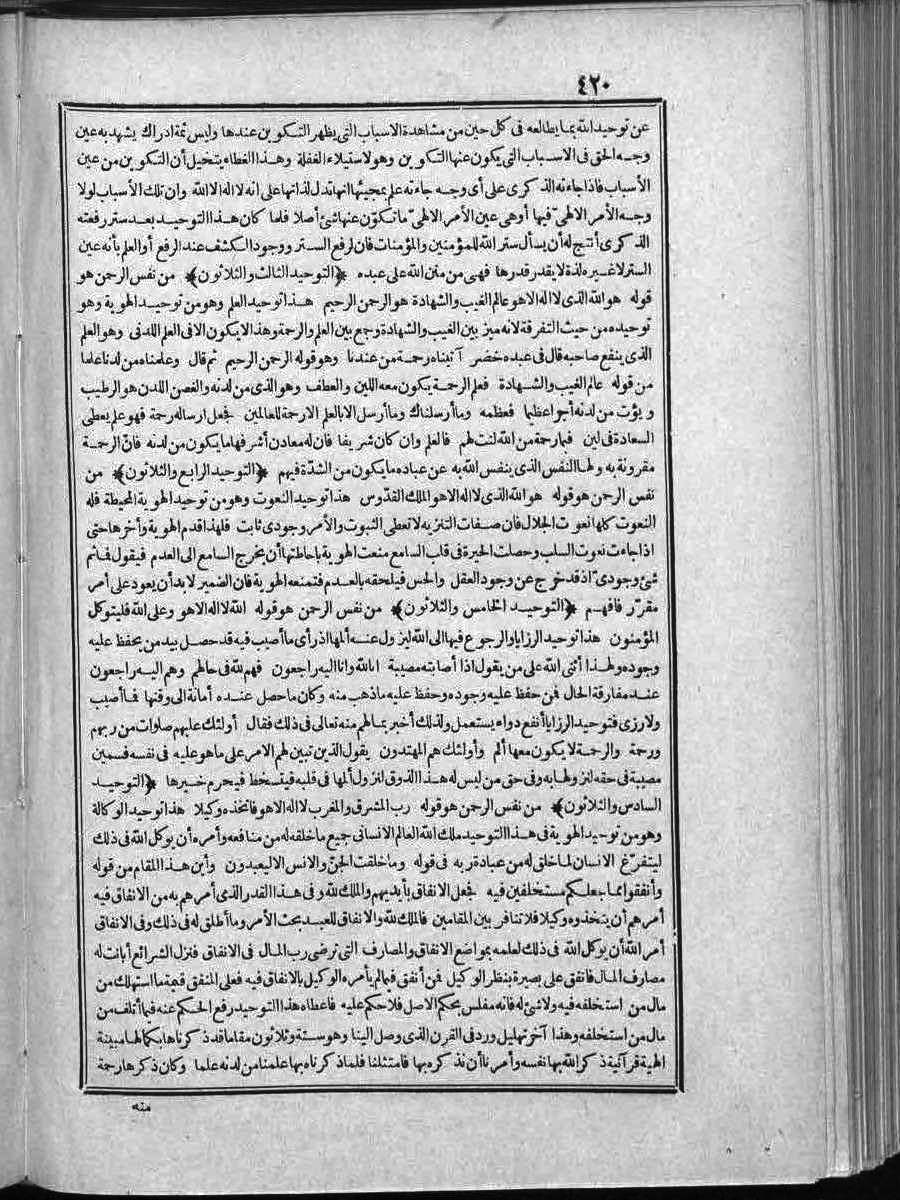 ٤٢٠
عن توحيد الله بما يطالعه في كل حين من مشاهدة الاسباب التي يظهر التكوين عندها وليس ثمة ادراك يشهد به عين
وجه الحق في الاسباب التي يكون عنها التكوين وهو لاستيلاء الغفلة وهذا الغطاء يتخيل أن التكوين من عين
الأسباب فاذا جاءته الذكرى على أي وجه جاءته علم بمجيئها انها تدل لذاتها على انه لا اله الا الله وان تلك الأسباب لولا
وجه الأمر الالهيّ فيها أو هي عين الأمر الالهيّ ما تكوّن عنها شئ أصلا فلما كان هذا التوحيد بعد ستر رفعته
الذكرى أنتج له أن يسأل ستر الله للمؤمنين والمؤمنات فان لرفع الستر ووجود الكشف عند الرفع أو العلم بأنه عين
الستر لا غيره لذة لا يقدر قدرها فهي من منن الله على عبده ﴿التوحيد الثالث والثلاثون﴾ من نفس الرحمن هو
قوله هو الله الذي لا اله الا هو عالم الغيب والشهادة هو الرحمن الرحيم هذا توحيد العلم وهو من توحيد الهوية وهو
توحيده من حيث التفرقة لانه ميز بين الغيب والشهادة وجمع بين العلم والرحمة وهذا لا يكون الا في العلم اللدني وهو العلم
الذي ينفع صاحبه قال في عبده خضر آتيناه رحمة من عندنا وهو قوله الرحمن الرحيم ثم قال وعلمناه من لدنا علما
من قوله عالم الغيب والشهادة فعلم الرحمة يكون معه اللين والعطف وهو الذي من لدنه والغصن اللدن هو الرطيب
ويؤت من لدنه أجرا عظيما فعظمه وما أرسلناك وما أرسل الا بالعلم الا رحمة للعالمين فجعل ارساله رحمة فهو علم يعطي
السعادة في لين فبما رحمة من الله لنت لهم فالعلم وان كان شريفا فان له معادن أشرفها ما يكون من لدنه فانّ الرحمة
مقرونة به ولها النفس الذي ينفس الله به عن عباده ما يكون من الشدّة فيهم ﴿التوحيد الرابع والثلاثون﴾ من
نفس الرحمن هو قوله هو الله الذي لا اله الا هو الملك القدّوس هذا توحيد النعوت وهو من توحيد الهوية المحيطة فله
النعوت كلها نعوت الجلال فان صفات التنزيه لا تعطي الثبوت والأمر وجودي ثابت فلهذا قدم الهوية وأخرها حتى
اذا جاءت نعوت السلب وحصلت الحيرة في قلب السامع منعت الهوية باحاطتها أن يخرج السامع الى العدم فيقول فما ثم
شئ وجوديّ اذ قد خرج عن وجود العقل والحس فيلحقه بالعدم فتمنعه الهوية فان الضمير لا بد أن يعود على أمر
مقرّر فافهم ﴿التوحيد الخامس والثلاثون﴾ من نفس الرحمن هو قوله الله لا اله الا هو وعلى الله فليتوكل
المؤمنون هذا توحيد الرزايا والرجوع فيها الى الله ليزول عنه ألمها اذ رأى ما أصيب فيه قد حصل بيد من يحفظ عليه
وجوده ولهذا أثنى الله على من يقول اذا أصابته مصيبة انا لله وانا اليه راجعون فهم لله في حالهم وهم اليه راجعون
عند مفارقة الحال فمن حفظ عليه وجوده وحفظ عليه ما ذهب منه وكان ما حصل عنده أمانة الى وقتها فما أصيب
ولا رزى فتوحيد الرزايا أنفع دواء يستعمل ولذلك أخبر بما لهم منه تعالى في ذلك فقال أولئك عليهم صلوات من ربهم
ورحمة والرحمة لا يكون معها ألم وأولئك هم المهتدون يقول الذين تبين لهم الامر على ما هو عليه في نفسه فسمين
مصيبة في حقه لنزولها به وفي حق من ليس له هذا الذوق لنزول ألمها في قلبه فيتسخط فيحرم خيرها ﴿التوحيد
السادس والثلاثون﴾ من نفس الرحمن هو قوله رب المشرق والمغرب لا اله الا هو فاتخذه وكيلا هذا توحيد الوكالة
وهو من توحيد الهوية في هذا التوحيد ملك الله العالم الانساني جميع ما خلقه له من منافعه وأمره أن يوكل الله في ذلك
ليتفرّغ الانسان لما خلق له من عبادة ربه في قوله وما خلقت الجنّ والانس الا ليعبدون وأين هذا المقام من قوله
وأنفقوا مما جعلكم مستخلفين فيه فجعل الانفاق بأيديهم والملك لله وفي هذا القدر الذي أمرهم به من الانفاق فيه
أمرهم أن يتخذوه وكيلا فلا تنافر بين المقامين فالملك لله والانفاق للعبد بحث الأمر وما أطلق له في ذلك وفي الانفاق
أمر الله أن يوكل الله في ذلك لعلمه بمواضع الانفاق والمصارف التي ترضي رب المال في الانفاق فنزل الشرائع أبانت له
مصارف المال فانفق على بصيرة بنظر الوكيل فمن أنفق فيما لم يأمره الوكيل بالانفاق فيه فعلى المنفق قيمة ما استهلك من
مال من استخلفه فيه ولا شئ له فانه مفلس بحكم الاصل فلا حكم عليه فاعطاه هذا التوحيد رفع الحكم عنه فيما أتلف من
مال من استخلفه وهذا آخر تهليل ورد في القرن الذي وصل الينا وهو ستة وثلاثون مقاما قد ذكرناها بكمالها مبينة
الهية قرآنية ذكر الله بها نفسه وأمرنا أن نذكره بها فامتثلنا فلما ذكرناه بها علمنا من لدنه علما وكان ذكرها رحمة
منه